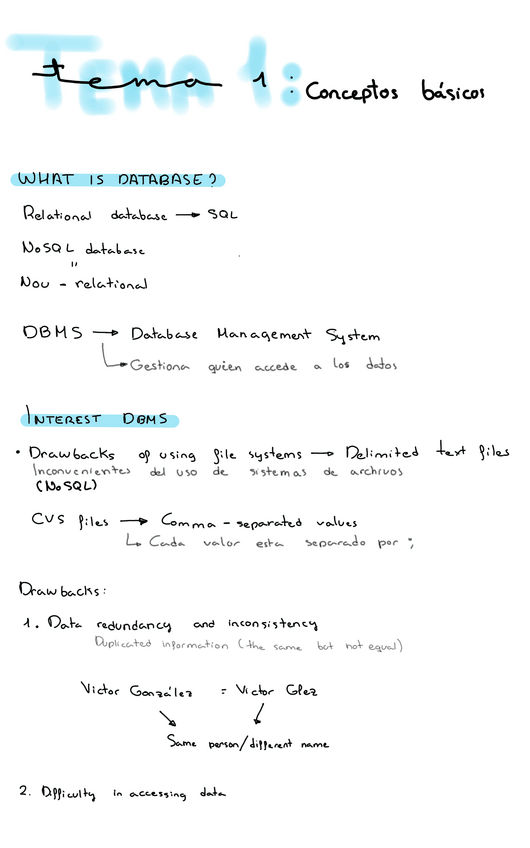 Tema 1: Conceptos básicos
WHAT IS DATABASE?
Relational database → SQL
NoSQL database
"
Nou - relational
DBMS → Database Management System
Gestiona quien accede a los datos
INTEREST DBMS
• Drawbacks of using file systems → Delimited text files
Inconvenientes del uso de sistemas de archivos
(NoSQL)
CVS files → Comma - separated values
Cada valor esta separado por ;
Drawbacks:
1. Data redundancy and inconsistency
Duplicated information (the same but not equal)
Victor González = Victor Glez
Same person/different name
2. Difficulty in accessing data